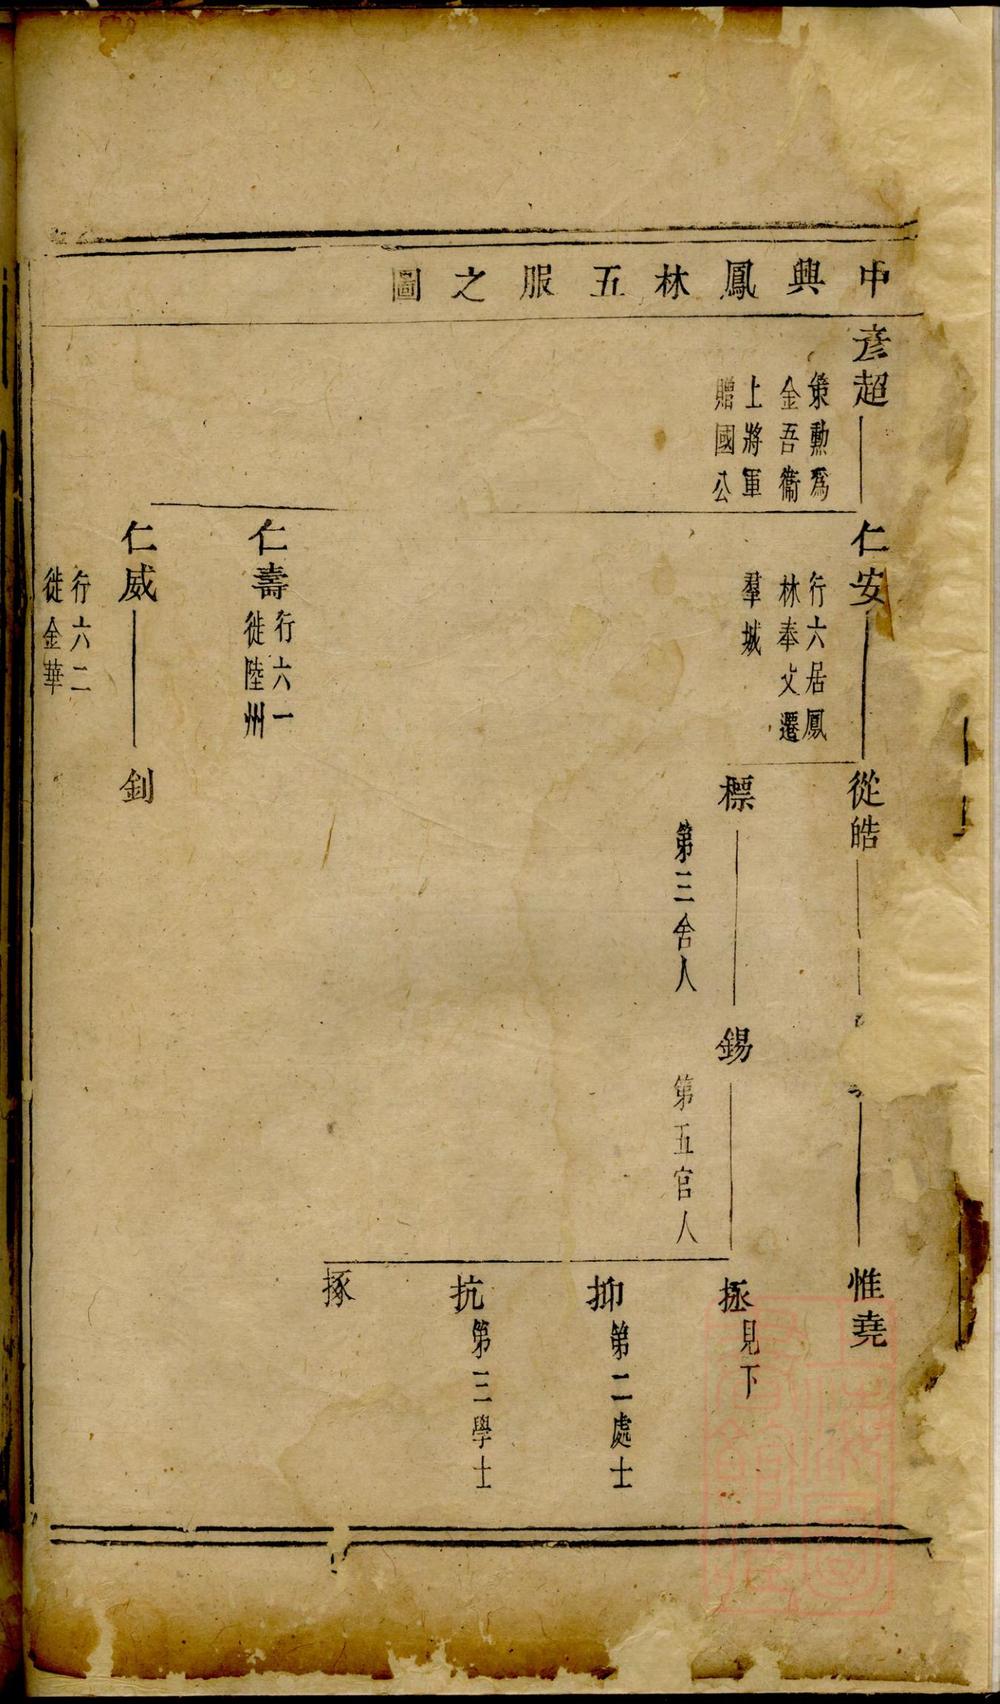 中興鳳林五服之圖
彥超
策勳爲
金吾衞
上將軍
贈國公
仁安
行六居鳳
林奉父遷
羣城
仁壽
行六一
徙陸州
仁威
行六二
徙金華
從皓
標
第三舍人
釗
錫
第五官人
惟堯
拯
見下
抑
第二處士
抗
第三學士
㧻